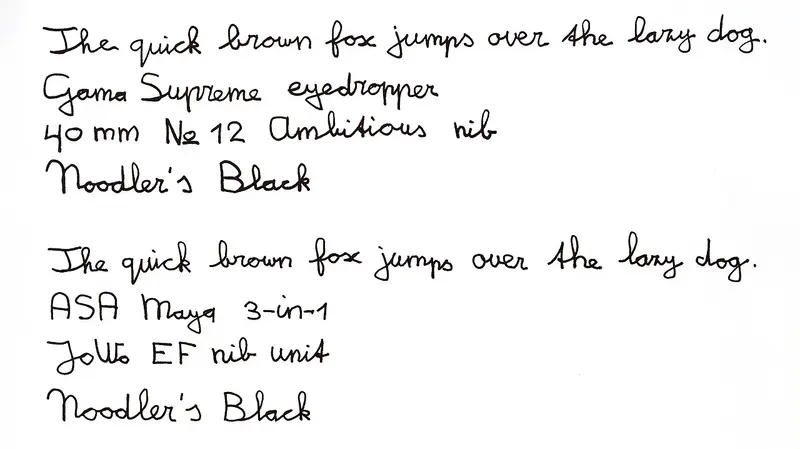 The quick brown fox jumps over the lazy dog.
Gama Supreme eyedropper
40 mm № 12 Ambitious nib
Noodler's Black
The quick brown fox jumps over the lazy dog.
ASA Maya 3-in-1
JoWo EF nib unit
Noodler's Black